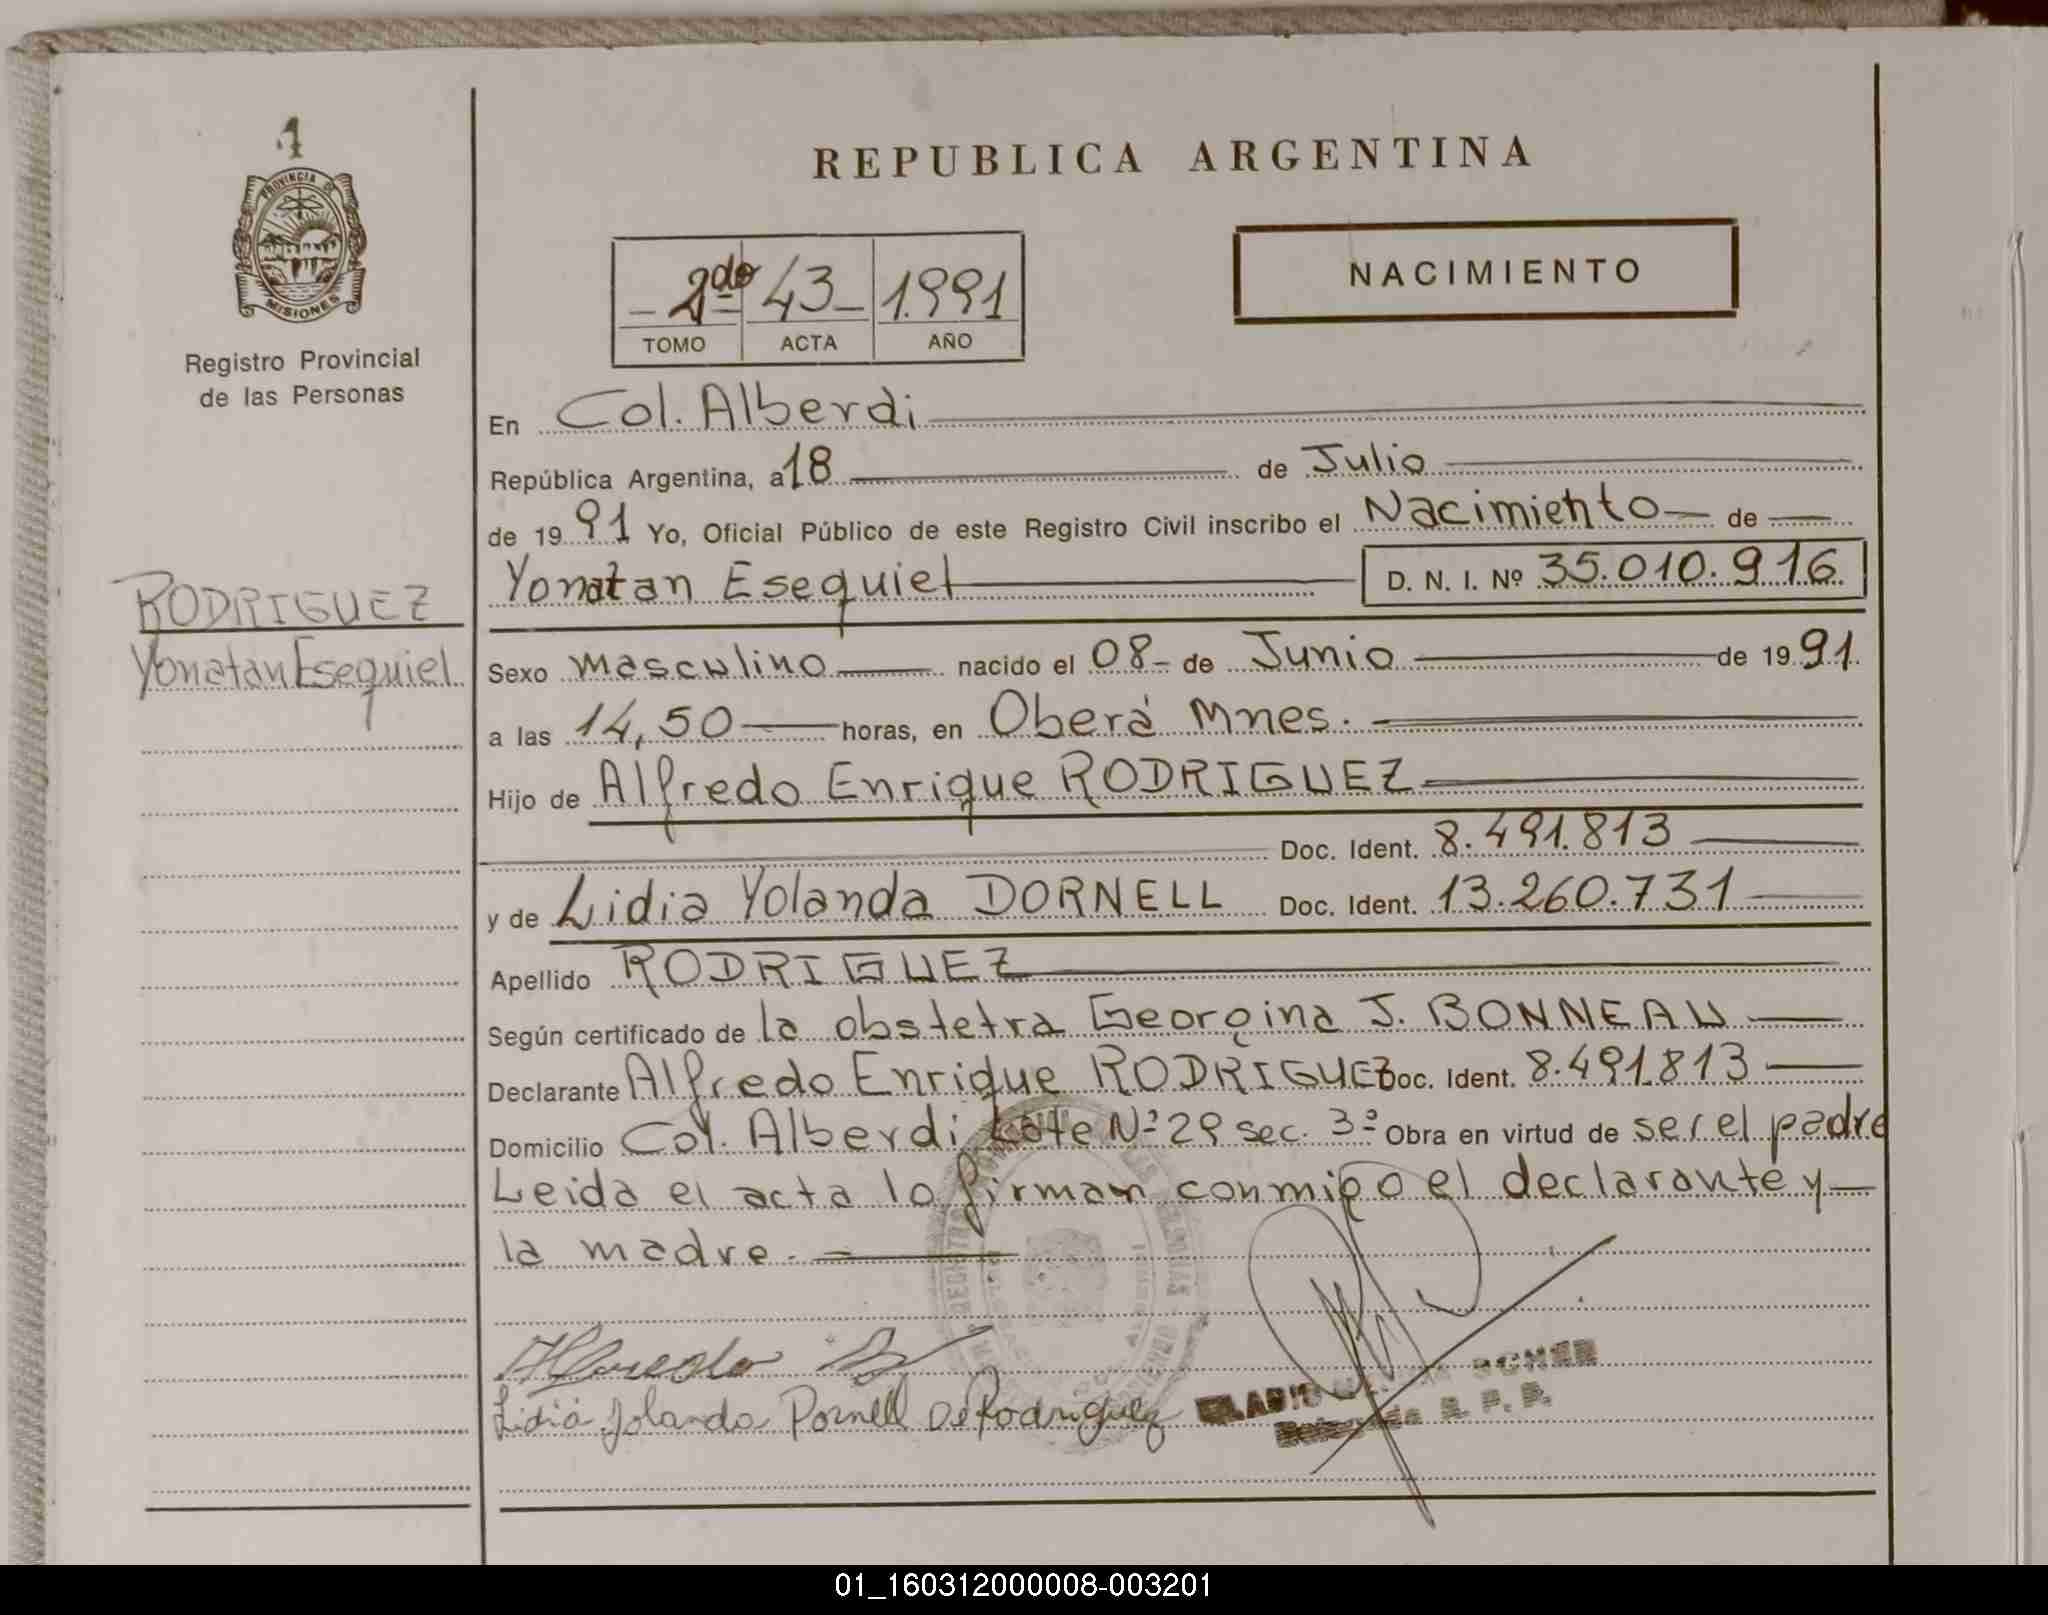 1
PROVINCIA DE
MISIONES
Registro Provincial
de las Personas
RODRIGUEZ
Yonatan Esequiel
REPUBLICA ARGENTINA
2do 43 1.991
TOMO ACTA AÑO
NACIMIENTO
En Col. Alberdi
República Argentina, a 18 de Julio
de 19 91 Yo, Oficial Público de este Registro Civil inscribo el Nacimiento de
Yonatan Esequiel D. N. I. Nº 35.010.916
Sexo masculino nacido el 08 de Junio de 19 91.
a las 14,50 horas, en Oberá Mnes.
Hijo de Alfredo Enrique RODRIGUEZ
Doc. Ident. 8.491.813
y de Lidia Yolanda DORNELL Doc. Ident. 13.260.731
Apellido RODRIGUEZ
Según certificado de la obstetra Georgina J. BONNEAU
Declarante Alfredo Enrique RODRIGUEZ Doc. Ident. 8.491.813
Domicilio Col. Alberdi Lote Nº 29 sec. 3º Obra en virtud de ser el padre
Leida el acta lo firman conmigo el declarante y
la madre.
Lidia Jolanda Dornell De Rodriguez
R. P. P.
01_160312000008-003201